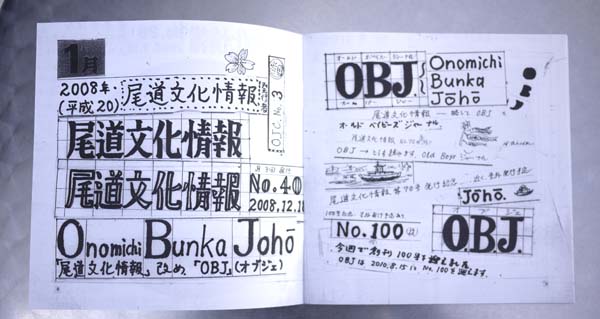 1月
2008年
(平成20)
尾道文化情報
O.J.C. No.3
尾道文化情報
尾道文化情報
No.4
2008.12.1
Onomichi Bunka Johō
『尾道文化情報』改め『OBJ』(オブジェ)
OBJ.
Onomichi
Bunka
Jōhō
尾道文化情報 ― 略して OBJ
オールド ベイビーズ ジャーナル
尾道文化情報
OBJ → とも読めます。Old Boys ジャーナル
尾道文化情報 第70号 発行記念
Jōho.
No.100
O.B.J.
今回で創刊100号を迎えました
OBJは2010.8.15にNo.100を迎えます。